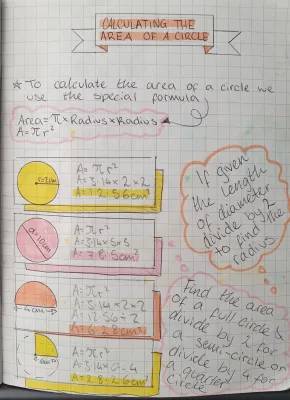 CALCULATING THE
AREA OF A CIRCLE
★ To calculate the area of a circle we
use the special formula
Area = π × Radius × Radius
A = πr²
r=2cm
A = πr²
A = 3.14 × 2 × 2
A = 12.56cm²
d=10cm
A = πr²
A = 3.14 × 5 × 5
A = 78.5cm²
4cm
A = πr²
A = 3.14 × 2 × 2
A = 12.56 ÷ 2
A = 6.28cm²
A = πr²
A = 28.26cm²
If given
the length
of diameter
divide by 2
to find the
radius
Find the area
of a full circle &
divide by 2 for
a semi-circle or
divide by 4 for
a quarter
circle